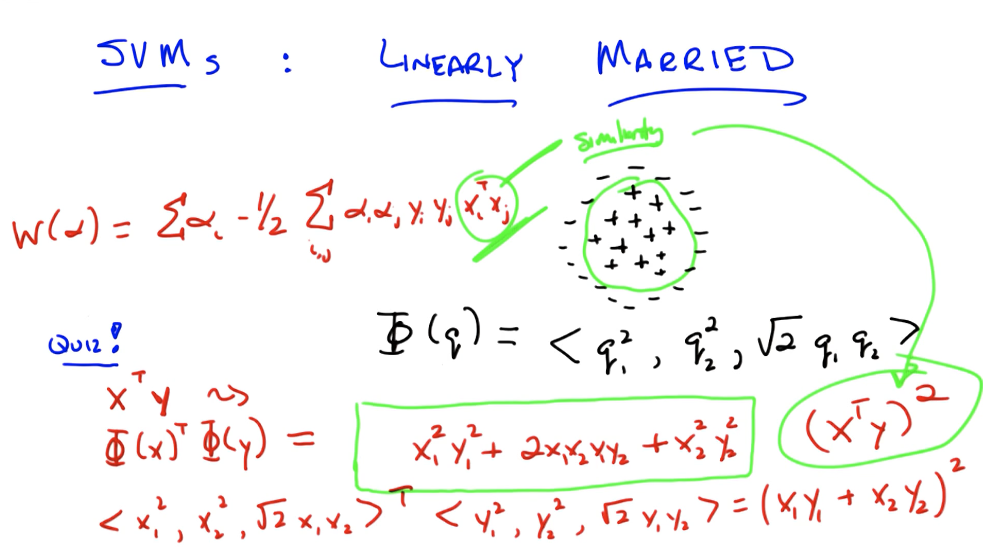 SVMs : LINEARLY MARRIED
similarity
W(α) = Σαᵢ - 1/2 Σᵢ,ⱼ αᵢαⱼ yᵢ yⱼ xᵢᵀxⱼ
Φ(q) = < q₁², q₂², √2 q₁ q₂ >
QUIZ!
xᵀy ⇝
Φ(x)ᵀ Φ(y) = x₁²y₁² + 2x₁x₂y₁y₂ + x₂²y₂² (xᵀy)²
< x₁², x₂², √2 x₁x₂ >ᵀ < y₁², y₂², √2 y₁y₂ > = (x₁y₁ + x₂y₂)²